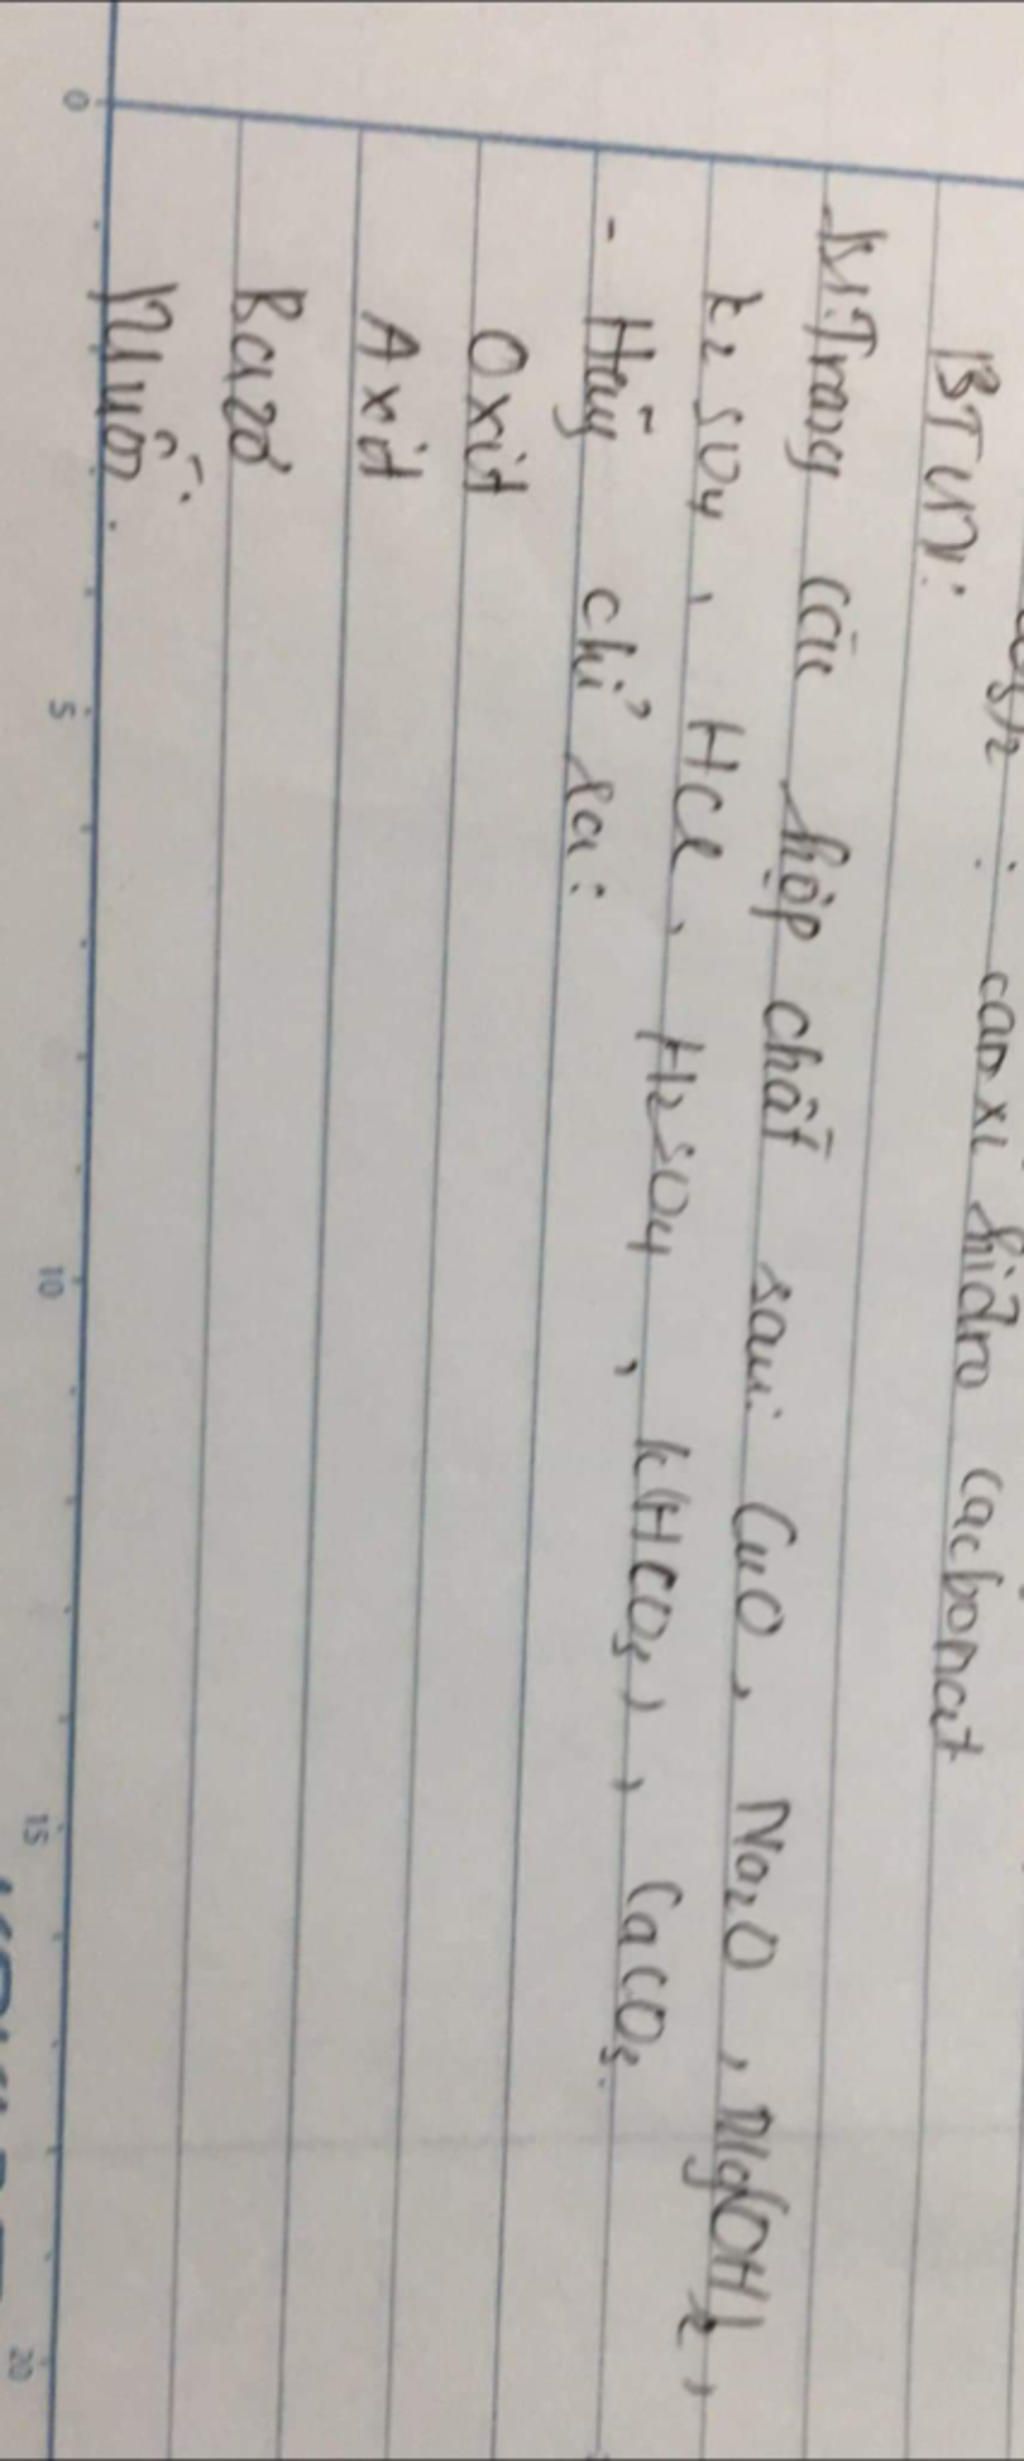 : canxi hiđro cacbonat
BTVN:
B1: Trong các hợp chất sau: CuO, Na2O, Mg(OH)2,
K2SO4, HCl, H2SO4, K(HCO3), CaCO3.
- Hãy chỉ ra:
Oxit
Axit
Bazơ
Muối.
0 5 10 15 20